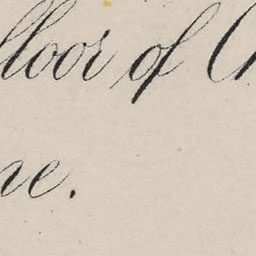 floor of
ne.